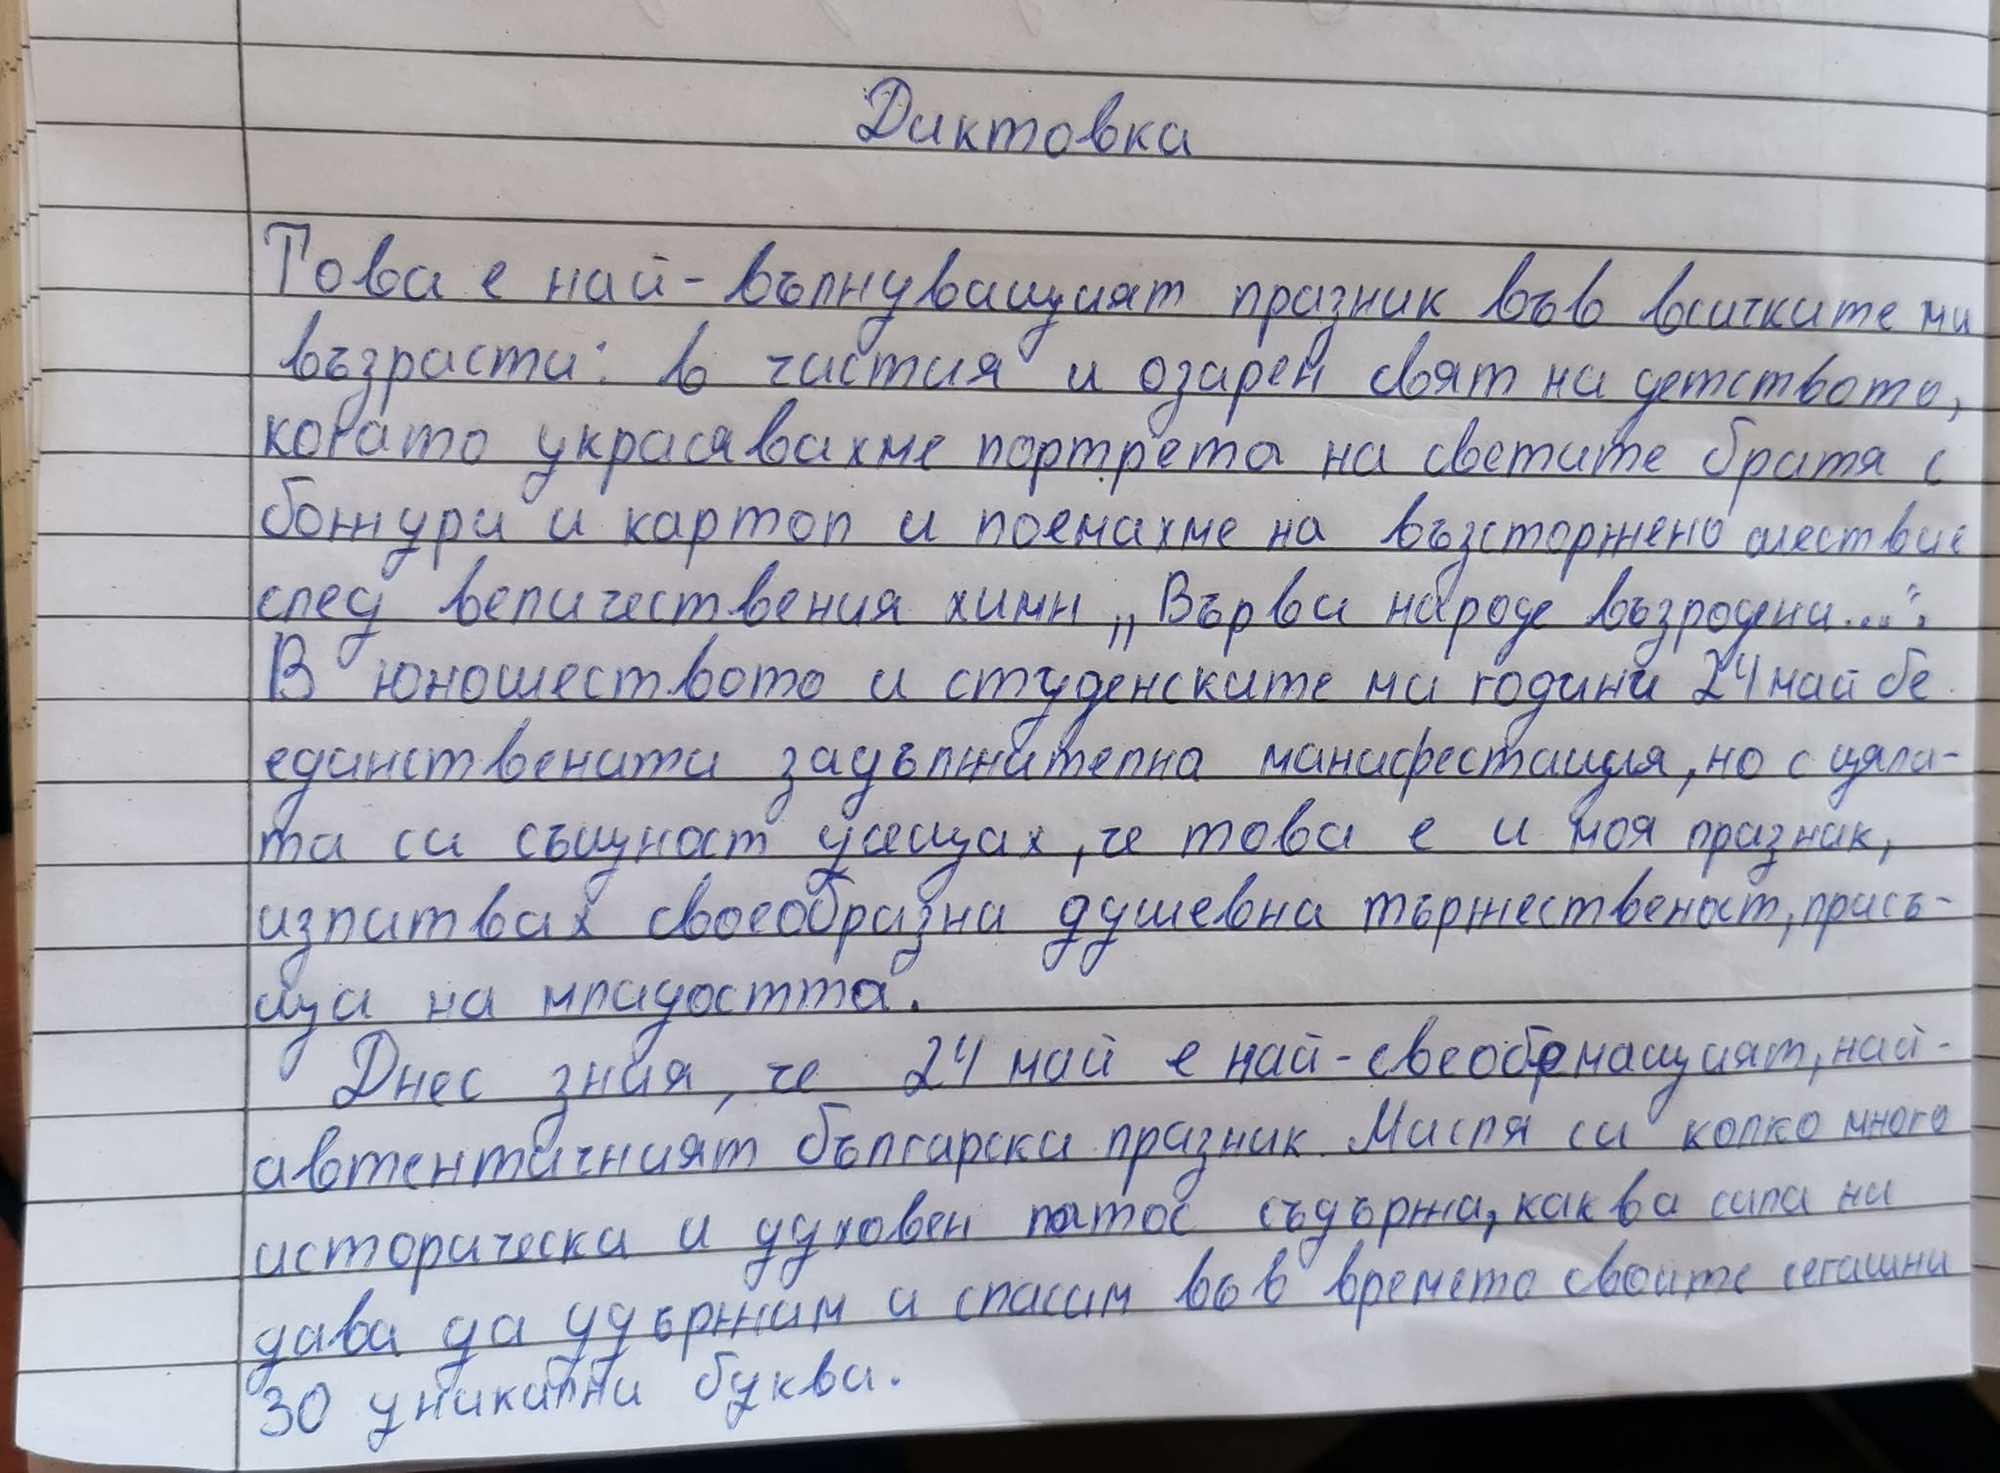 Диктовка
Това е най-вълнуващият празник във всичките ми
възрасти: в чистия и озарен свят на детството,
когато украсявахме портрета на светите братя с
божури и картоп и поемахме на възсторжено шествие
след величествения химн „Върви народе възродени...“.
В юношеството и студенските ми години 24 май бе
единствената задължителна манифестация, но с цяла-
та си същност усещах, че това е и моя празник,
изпитвах своеобразна душевна тържественост, присъ-
ща на младостта.
Днес зная, че 24 май е най-своеобемащият, най-
автентичният български празник. Мисля си колко много
исторически и духовен патос съдържа, каква сила ни
дава да удържим и спасим във времето своите сегашни
30 уникални букви.